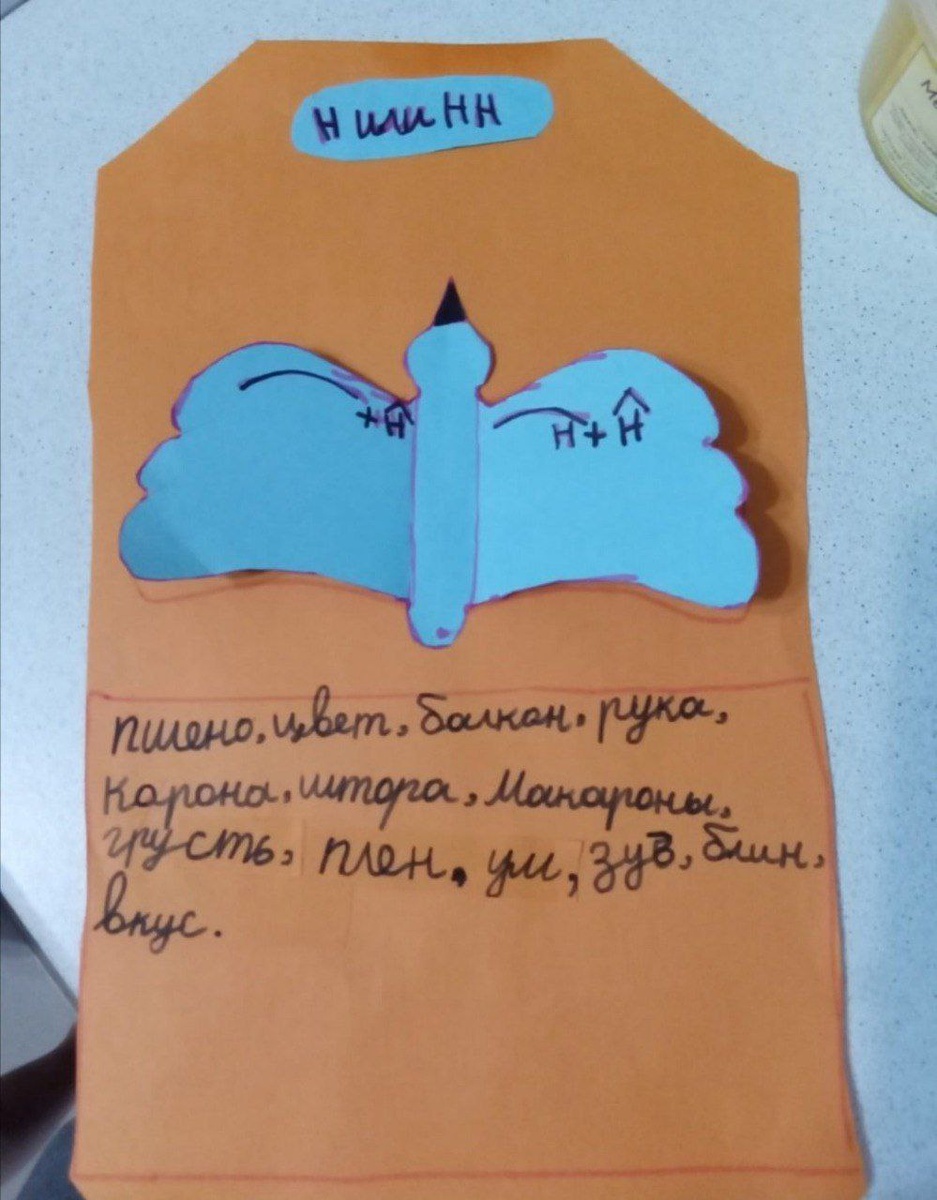 Н или НН
+Н Н+Н
пшено, цвет, балкон, рука,
карона, штора, макароны,
грусть, плен, ум, зуб, блин,
вкус.